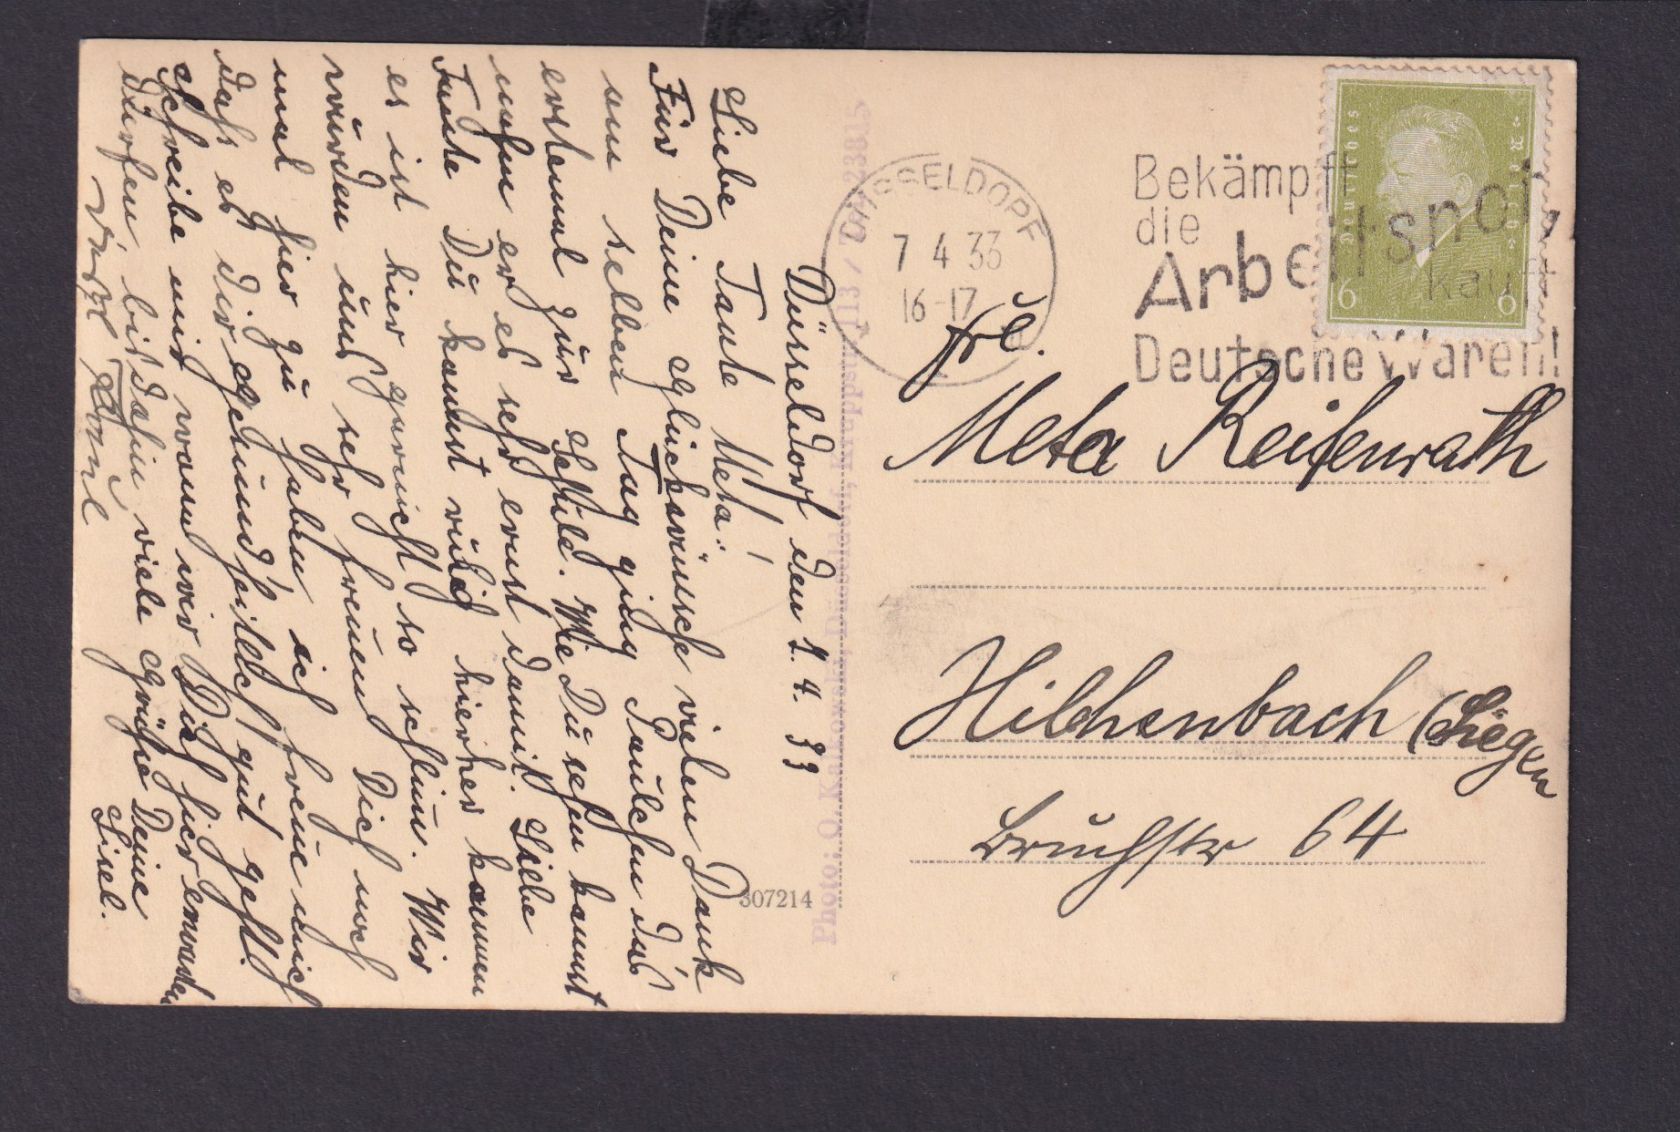 Düsseldorf den 7. 4. 33
Liebe Tante Meta!
Für Deine Glückwünsche vielen Dank
am selben Tag ging Paulchen das
erstemal zur Schule. Wie Du sehen kannst
nahm er es sehr ernst damit. Liebe
Tante Du kannst ruhig hierher kommen
es ist hier garnicht so schlim. Wir
würden uns sehr freuen Dich noch
mal hier zu haben ich freue mich
daß es dir gesundheitlich gut geht.
Schreibe uns wann wir Dich hier erwarten
dürfen bis dahin viele Grüße Deine
Liesel.
Photo: O. Kalkowski, Düsseldorf, Kruppstr. 113 / Tel. 23815
307214
DÜSSELDORF
7 4 33
16-17
Bekämpft
die
Arbeitsnot,
kauft
Deutsche Waren!
Deutsches Reich
6 6
Frl.
Meta Reifenrath
Hilchenbach (Siegen
Bruchstr 64